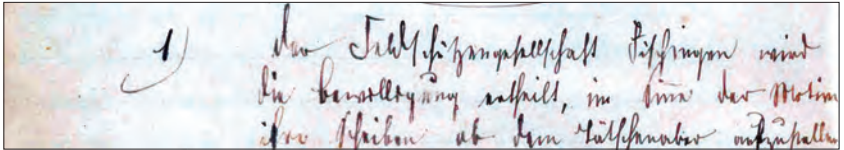 1) der Feldschützengesellschaft Fischingen wird
die bewilligung ertheilt, im Sinne der Motive
ihre Scheiben ob dem aufzustellen